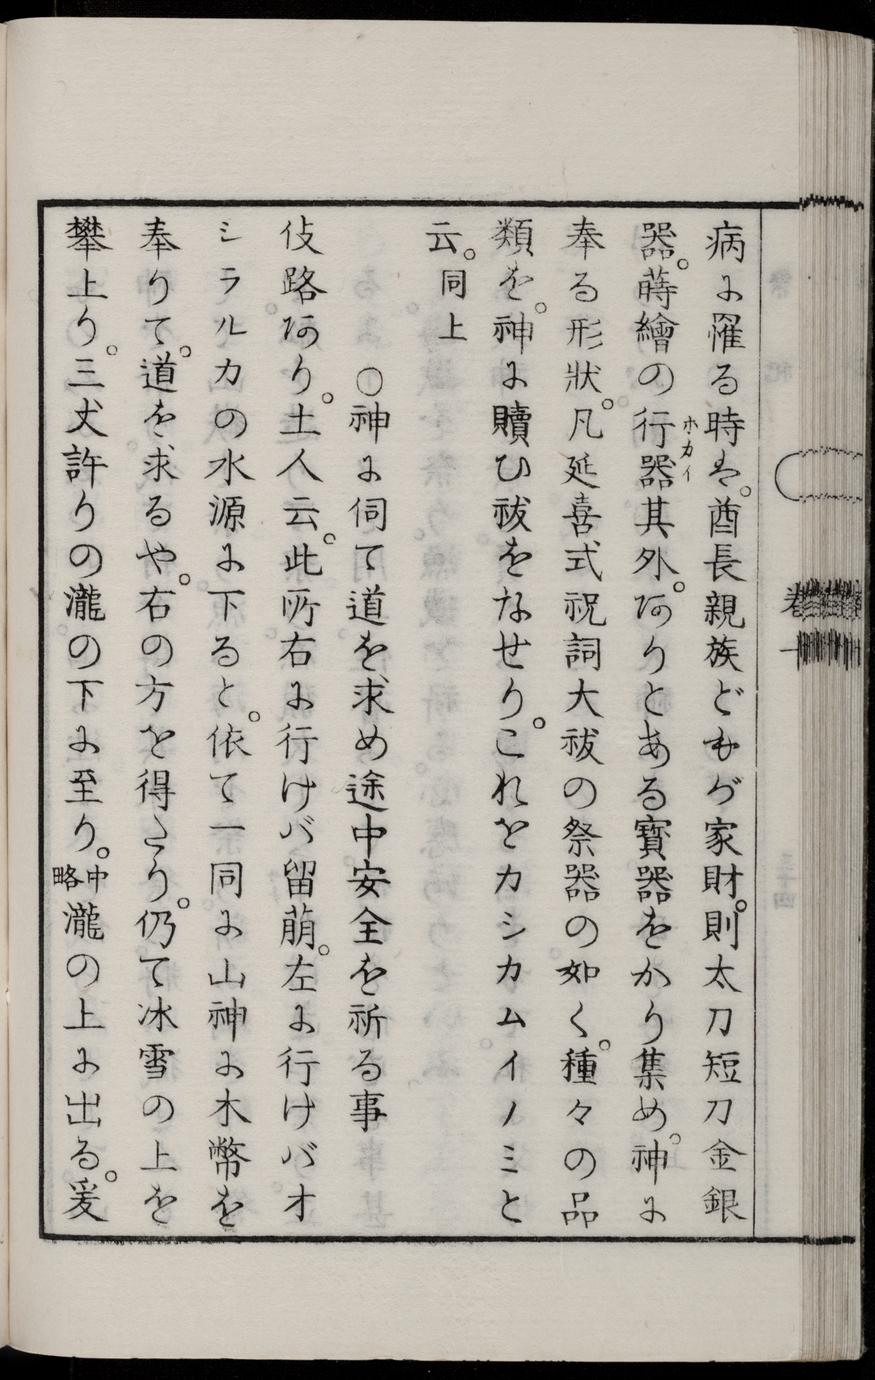 病に罹る時は。酋長親族どもが家財。則太刀短刀金銀
器。蒔繪の行器其外。ありとある寶器をかり集め。神に
ホカイ
奉る形狀。凡延喜式祝詞大祓の祭器の如く。種々の品
類を。神に贖ひ祓をなせり。これをカシカムイノミと
云。同上
〇神に伺て道を求め途中安全を祈る事
伎路あり。土人云。此所右に行けバ留萠。左に行けバオ
シラルカの水源に下ると。依て一同に山神に木幣を
奉りて。道を求るや。右の方を得たり。仍て冰雪の上を
攀上り。三丈許りの瀧の下に至り。中略瀧の上に出る。爰
卷一